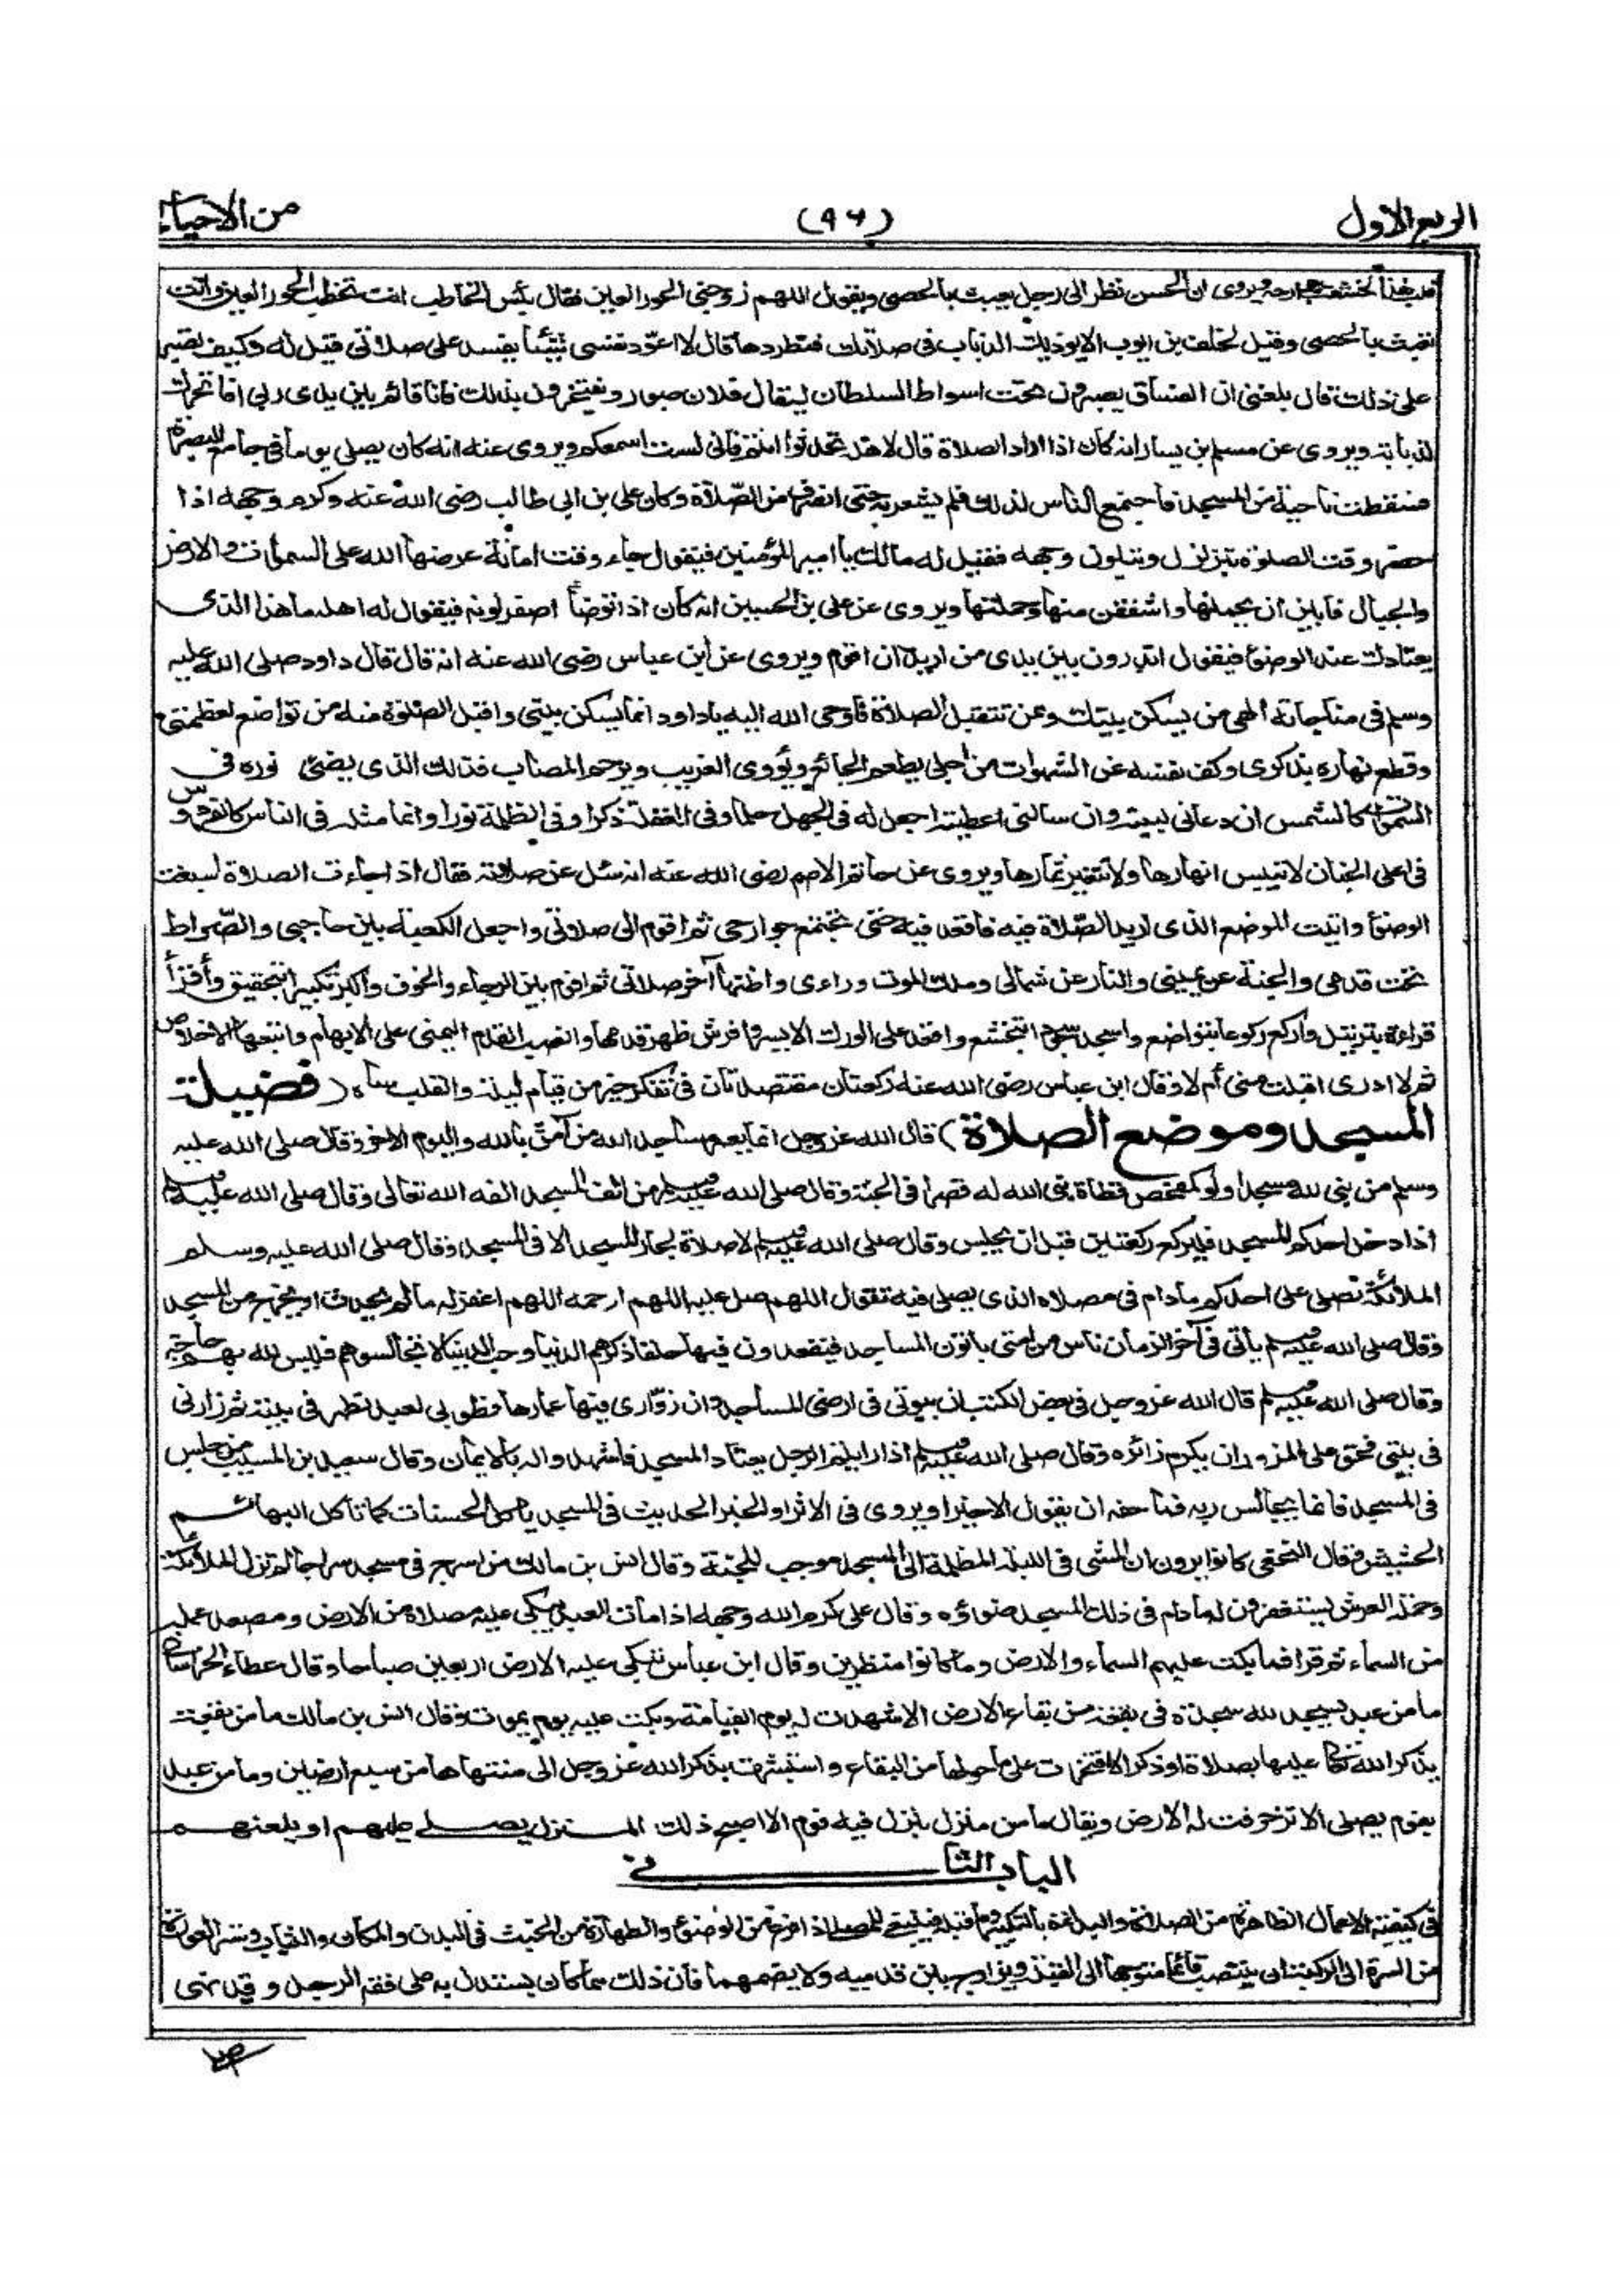 الربع الاول (٩٦) من الاحياء
قلب هذا لخشعت جوارحه ويروى ان الحسن نظر الى رجل يعبث بالحصى ويقول اللهم زوجنى الحور العين فقال بئس الخاطب انت تخطب الحور العين وانت
تعبث بالحصى وقيل لخلف بن ايوب الا يوذيك الذباب فى صلاتك فتطردها قال لا اعوّد نفسى شيئا يفسد على صلاتى قيل له وكيف تصبر
على ذلك قال بلغنى ان الفساق يصبرون تحت اسواط السلطان ليقال فلان صبور ويفتخرون بذلك فانا قائم بين يدى ربى افاتحرك
لذبابة ويروى عن مسلم بن يسار انه كان اذا اراد الصلاة قال لاهله تحدثوا انتم فانى لست اسمعكم ويروى عنه انه كان يصلى يوما فى جامع البصرة
فسقطت ناحية من المسجد فاجتمع الناس لذلك فلم يشعر به حتى انصرف من الصّلاة وكان على بن ابى طالب رضى الله عنه وكرم وجهه اذا
حضر وقت الصلوة يتزلزل ويتلون وجهه فقيل له مالك يا امير المؤمنين فيقول جاء وقت امانة عرضها الله على السموات والارض
والجبال فابين ان يحملنها واشفقن منها وحملتها ويروى عن على بن الحسين انه كان اذا توضأ اصفر لونه فيقول له اهله ما هذا الذى
يعتادك عند الوضوء فيقول اتدرون بين يدى من اريد ان اقوم ويروى عن ابن عباس رضى الله عنه انه قال قال داود صلى الله عليه
وسلم فى مناجاته الهى من يسكن بيتك وعن تتقبل الصلاة فاوحى الله اليه ياداود انما يسكن بيتى واقبل الصلوة منه من تواضع لعظمتى
وقطع نهاره بذكرى وكف نفسه عن الشهوات من اجلى يطعم الجائع ويؤوى الغريب ويرحم المصاب فذلك الذى يضئ نوره فى
السموات كالشمس ان دعانى لبيته وان سالنى اعطيته اجعل له فى الجهل حلما وفى الغفلة ذكرا وفى الظلمة نورا وانما مثله فى الناس كالفردوس
فى اعلى الجنان لا تيبس انهارها ولا تتغير ثمارها ويروى عن حاتم الاصم رضى الله عنه انه سئل عن صلاته فقال اذا جاءت الصلاة اسبغت
الوضوء واتيت الموضع الذى اريد الصّلاة فيه فاقعد فيه حتى تجتمع جوارحى ثم اقوم الى صلاتى واجعل الكعبة بين حاجبى والصّراط
تحت قدمى والجنة عن يمينى والنار عن شمالى وملك الموت وراءى واظنها آخر صلاتى ثم اقوم بين الرجاء والخوف واكبر تكبيرا بتحقيق وأقرأ
قراءة بترتيل واركع ركوعا بتواضع واسجد سجودا بتخشع واقعد على الورك الايسر وافرش ظهر قدمها وانصب القدم اليمنى على الابهام واتبعها الاخلاص
ثم لا ادرى اقبلت منى أم لا وقال ابن عباس رضى الله عنه ركعتان مقتصدتان فى تفكر خير من قيام ليلة والقلب ساه (فضيلة
المسجد وموضع الصلاة) قال الله عز وجل انما يعمر مساجد الله من آمن بالله واليوم الاخر وقال صلى الله عليه
وسلم من بنى لله مسجدا ولو كمفحص قطاة بنى الله له قصرا فى الجنة وقال صلى الله عليه وسلم من الف المسجد الفه الله تعالى وقال صلى الله عليه وسلم
اذا دخل احدكم المسجد فليركع ركعتين قبل ان يجلس وقال صلى الله عليه وسلم لا صلاة لجار المسجد الا فى المسجد وقال صلى الله عليه وسلم
الملائكة تصلى على احدكم مادام فى مصلاه الذى يصلى فيه تقول اللهم صل عليه اللهم ارحمه اللهم اغفر له مالم يحدث او يخرج من المسجد
وقال صلى الله عليه وسلم يأتى فى آخر الزمان ناس من امتى ياتون المساجد فيقعدون فيها حلقا ذكرهم الدنيا وحب الدنيا لا تجالسوهم فليس لله بهم حاجة
وقال صلى الله عليه وسلم قال الله عز وجل فى بعض الكتب ان بيوتى فى ارضى المساجد وان زوّارى فيها عمارها فطوبى لعبد تطهر فى بيته ثم زارنى
فى بيتى فحق على المزور ان يكرم زائره وقال صلى الله عليه وسلم اذا رايتم الرجل يعتاد المسجد فاشهدوا له بالايمان وقال سعيد بن المسيب من جلس
فى المسجد فانما يجالس ربه فما حقه ان يقول الا خيرا ويروى فى الاثر او الخبر الحديث فى المسجد ياكل الحسنات كما تأكل البهائم
الحشيش وقال النخعى كانوا يرون ان المشى فى الليلة المظلمة الى المسجد موجب للجنة وقال انس بن مالك من اسرج فى مسجد سراجا لم تزل الملائكة
وحملة العرش يستغفرون له مادام فى ذلك المسجد ضوؤه وقال على كرم الله وجهه اذا مات العبد يبكى عليه مصلاه من الارض ومصعد عمله
من السماء ثم قرا فما بكت عليهم السماء والارض وما كانوا منظرين وقال ابن عباس تبكى عليه الارض اربعين صباحا وقال عطاء الخراسانى
ما من عبد يسجد لله سجدة فى بقعة من بقاع الارض الا شهدت له يوم القيامة وبكت عليه يوم يموت وقال انس بن مالك ما من بقعة
يذكر الله تعالى عليها بصلاة او ذكر الا افتخرت على ما حولها من البقاع واستبشرت بذكر الله عز وجل الى منتهاها من سبع ارضين وما من عبد
يقوم يصلى الا تزخرفت له الارض ويقال ما من منزل ينزل فيه قوم الا اصبح ذلك المنزل يصلى عليهم او يلعنهم
الباب الثانى
فى كيفية الاعمال الظاهرة من الصلاة والبداءة بالتكبير وما قبله فينبغى للمصلى اذا فرغ من الوضوء والطهارة من الخبث فى البدن والمكان والثياب وستر العورة
من السرة الى الركبة ان ينتصب قائما متوجها الى القبلة ويزاوج بين قدميه ولا يضمهما فان ذلك مما كان يستدل به على فقه الرجل وقد نهى